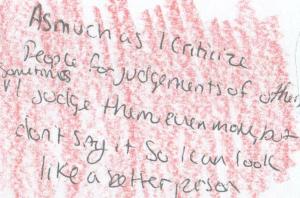 As much as I criticize
People for judgements of others
sometimes
I judge them even more, but
don't say it so I can look
like a better person